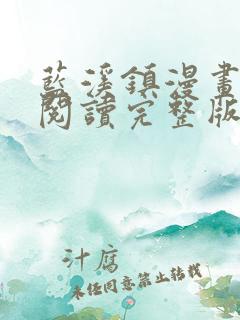 藍溪鎮漫畫
閱讀完整版
汁腐
未经同意禁止转载